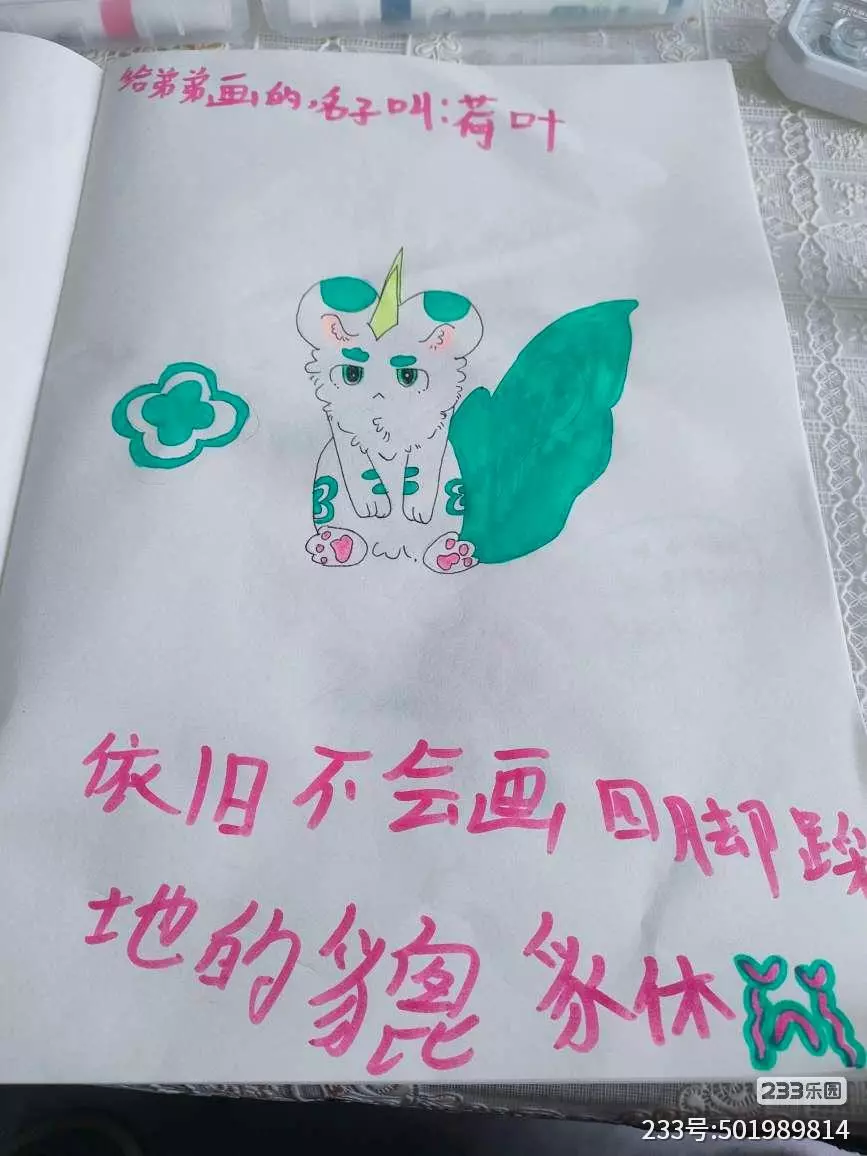 给弟弟画的,名子叫:荷叶
依旧不会画四脚踩
地的貔貅
233乐园
233号:501989814